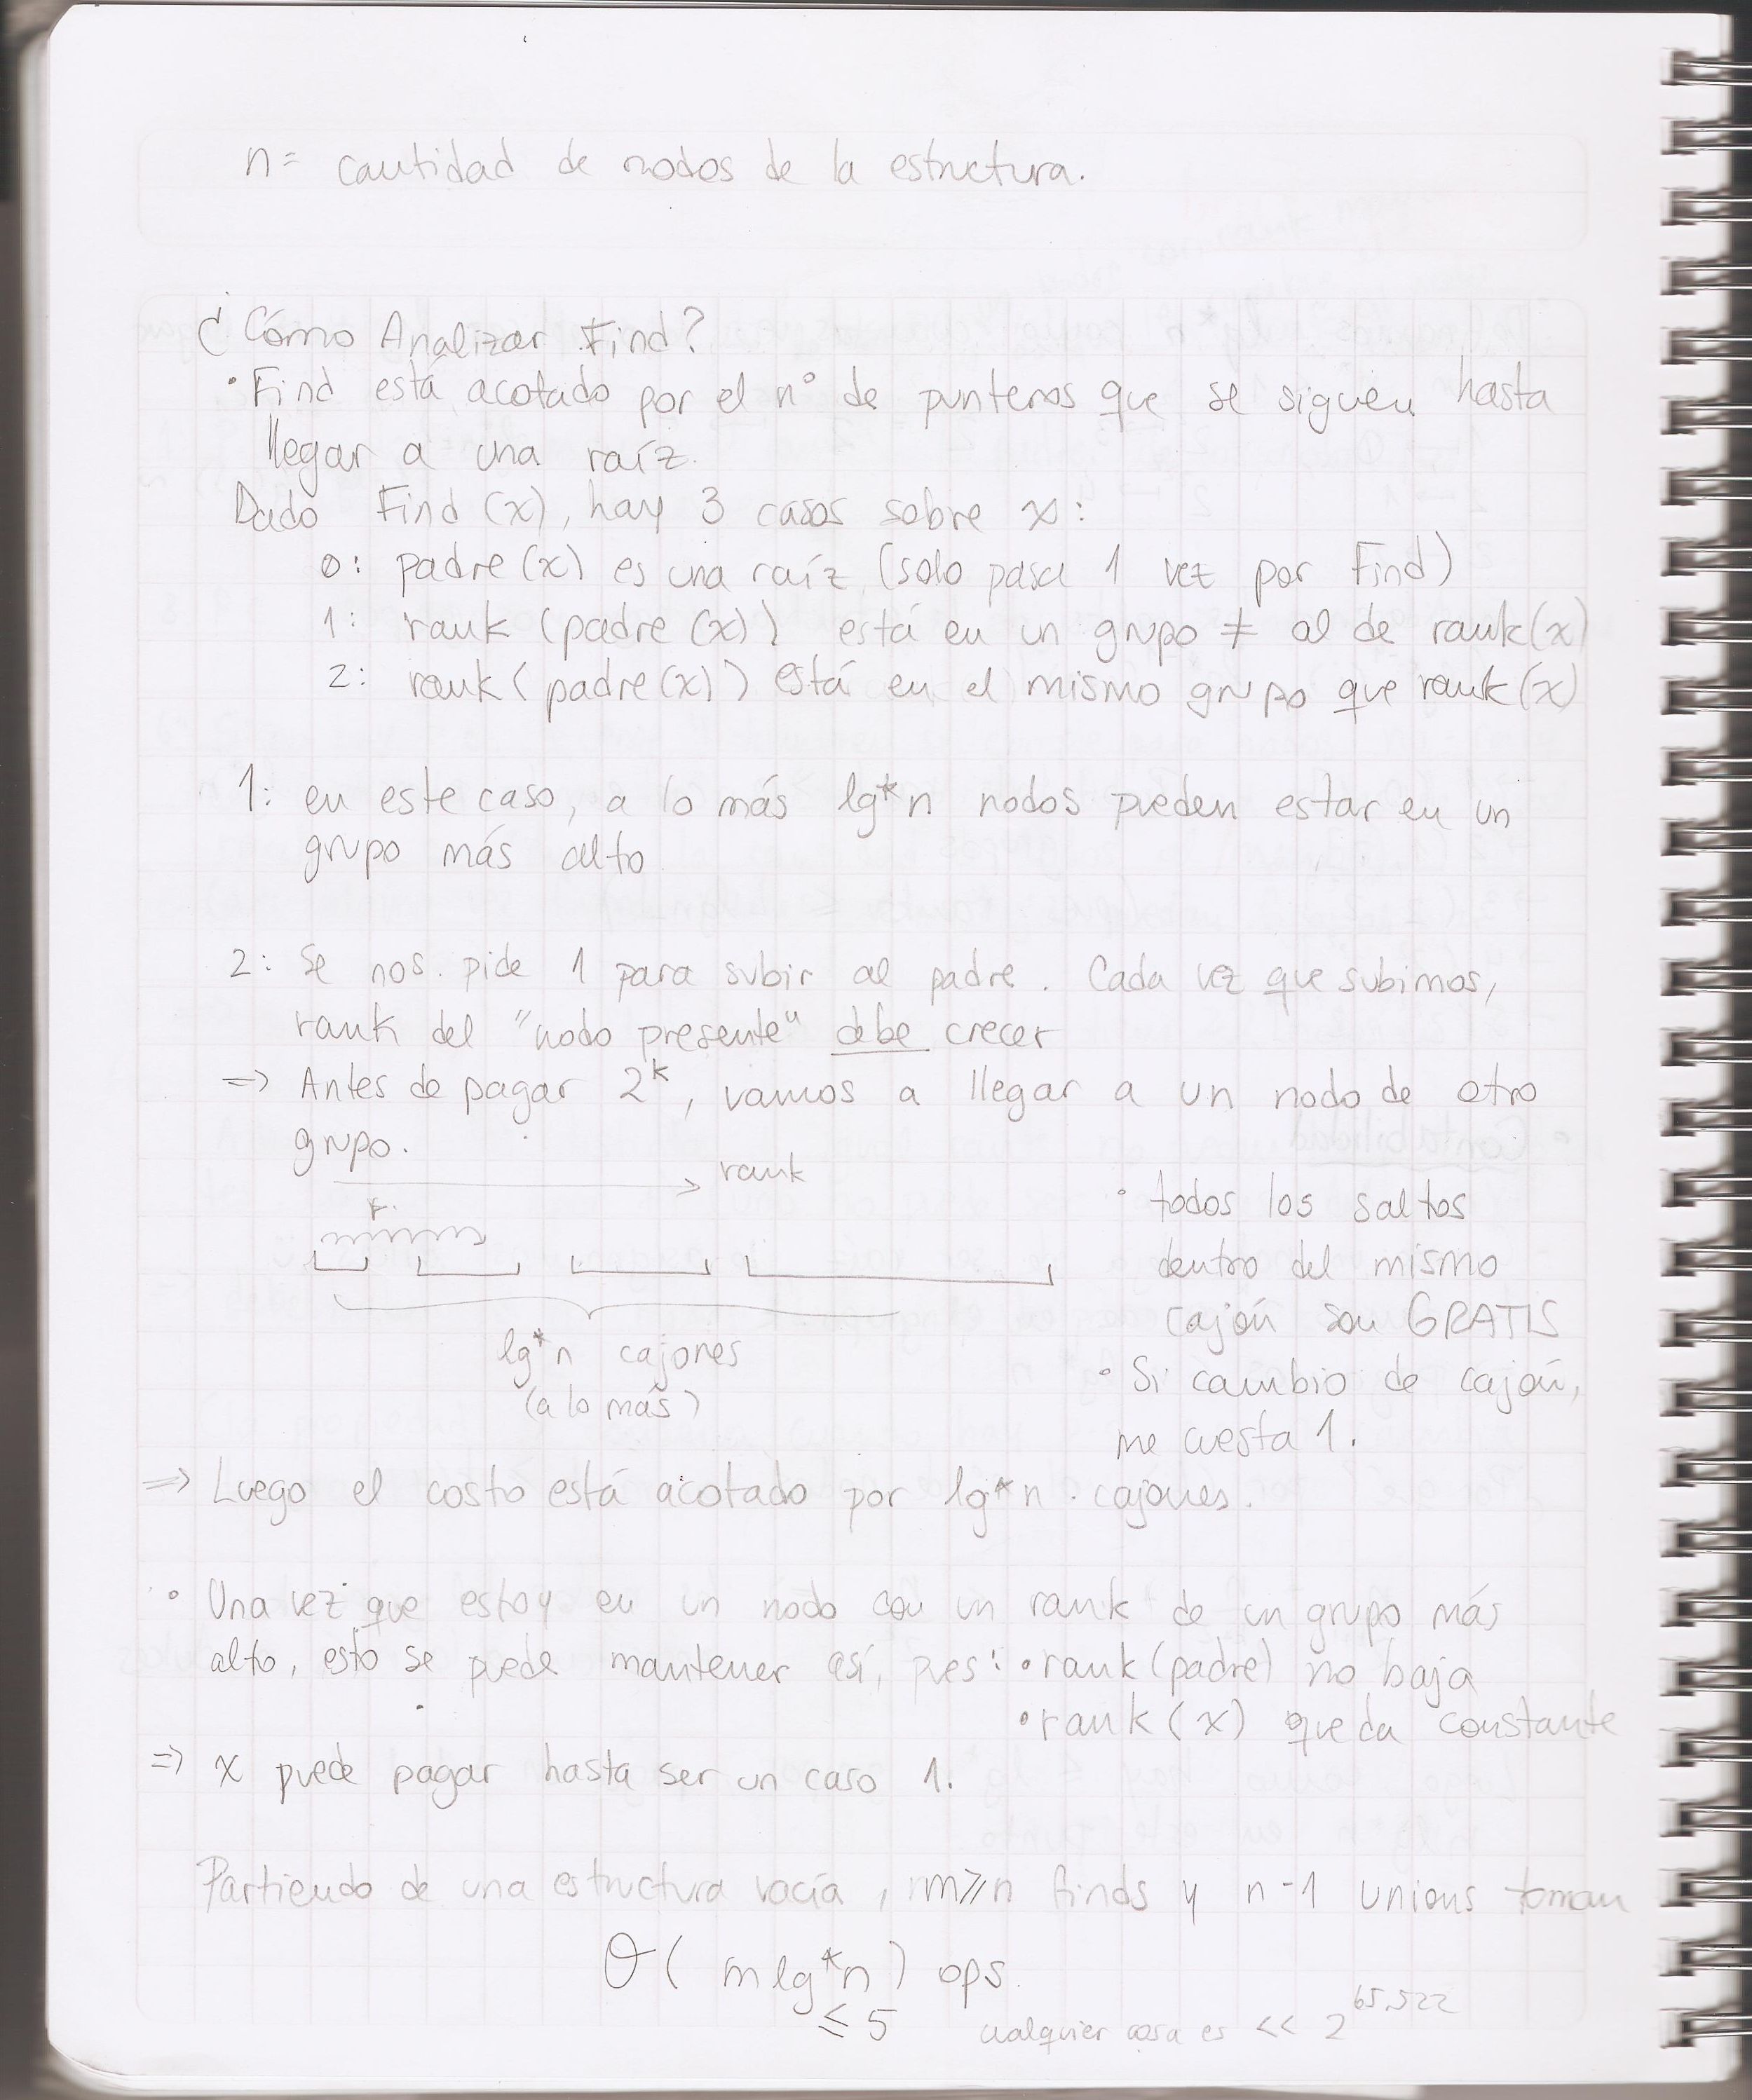 n = cantidad de nodos de la estructura.
¿Cómo Analizar Find?
• Find está acotado por el n° de punteros que se siguen hasta
llegar a una raíz.
Dado Find (x), hay 3 casos sobre x:
0: padre (x) es una raíz (solo pasa 1 vez por Find)
1: rank (padre (x)) está en un grupo ≠ al de rank(x)
2: rank (padre(x)) está en el mismo grupo que rank(x)
1: en este caso, a lo más lg*n nodos pueden estar en un
grupo más alto
2: Se nos pide 1 para subir al padre. Cada vez que subimos,
rank del "nodo presente" debe crecer
=> Antes de pagar 2^k, vamos a llegar a un nodo de otro
grupo.
rank
r
lg*n cajones
(a lo más)
• todos los saltos
dentro del mismo
cajón son GRATIS
• Si cambio de cajón,
me cuesta 1.
=> Luego el costo está acotado por lg*n cajones.
• Una vez que estoy en un nodo con un rank de un grupo más
alto, esto se puede mantener así, pues: • rank (padre) no baja
• rank (x) queda constante
=> x puede pagar hasta ser un caso 1.
Partiendo de una estructura vacía, m≥n finds y n-1 unions toman
Θ( m lg*n ) ops.
≤ 5
cualquier cosa es << 2^65.522